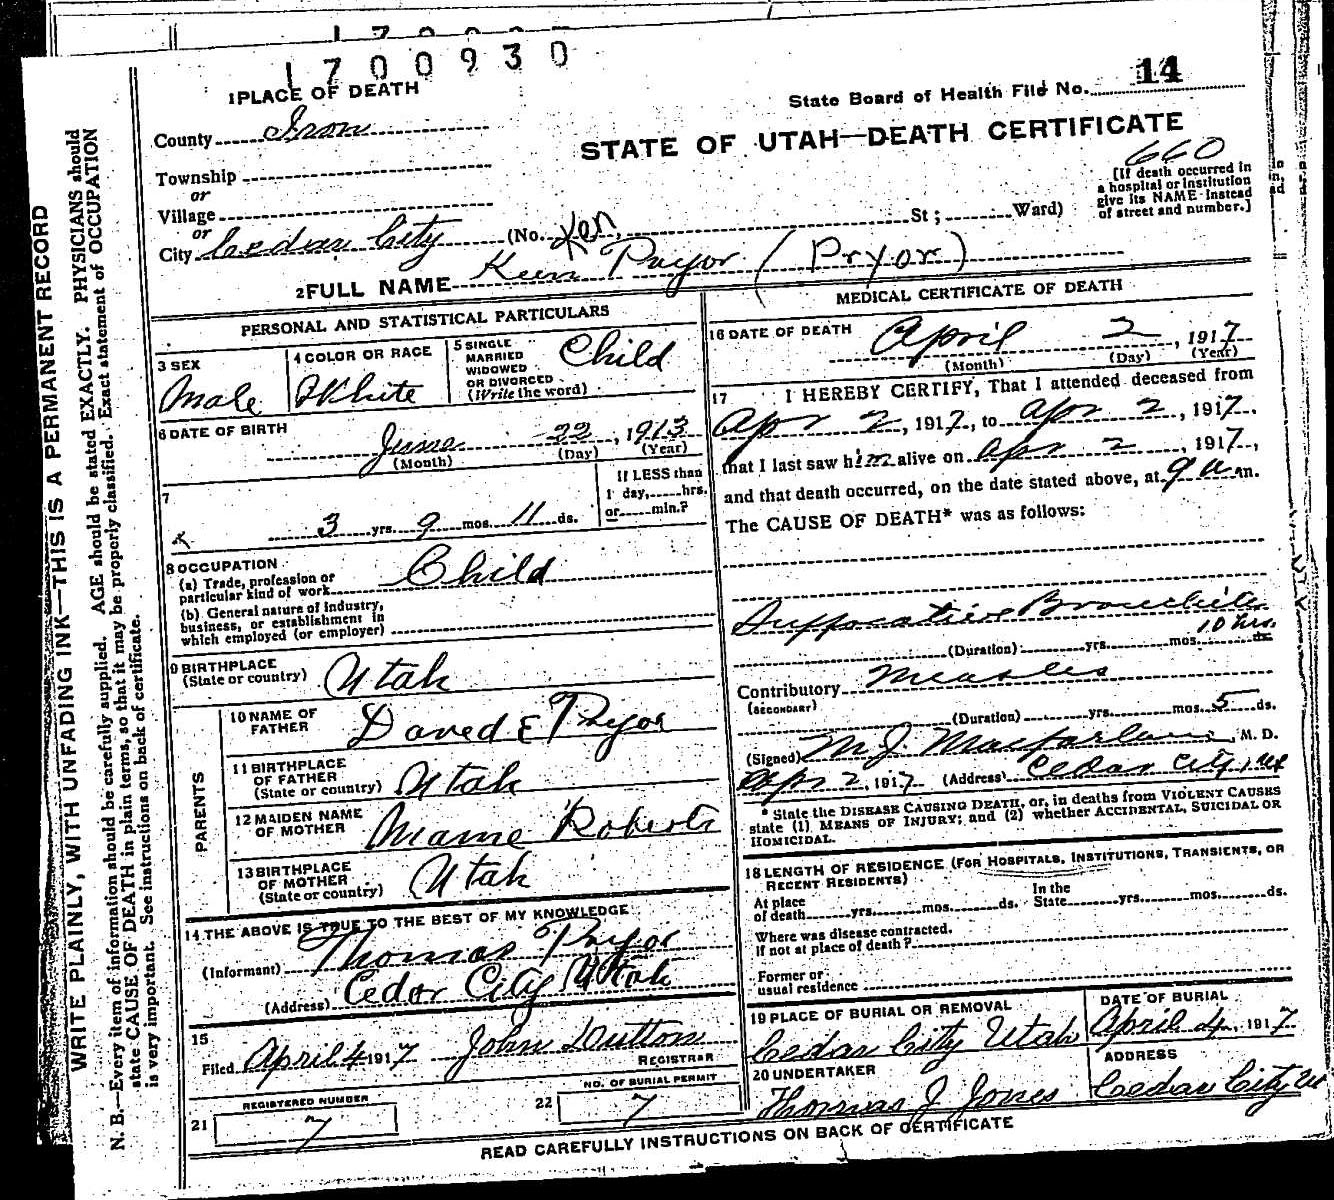 1700930
1 PLACE OF DEATH
State Board of Health File No. 14
County Iron
STATE OF UTAH—DEATH CERTIFICATE
660
Township
or
Village
or
City Cedar City (No. St ; Ward)
[If death occurred in
a hospital or institution
give its NAME instead
of street and number.]
Ken
2 FULL NAME Keen Pryor (Pryor)
PERSONAL AND STATISTICAL PARTICULARS
3 SEX
Male
4 COLOR OR RACE
White
5 SINGLE
MARRIED
WIDOWED
OR DIVORCED
(Write the word)
Child
6 DATE OF BIRTH
June 22, 1913
(Month) (Day) (Year)
7
3 yrs. 9 mos. 11 ds.
If LESS than
1 day, hrs.
or min.?
8 OCCUPATION
(a) Trade, profession or
particular kind of work
Child
(b) General nature of industry,
business, or establishment in
which employed (or employer)
9 BIRTHPLACE
(State or country)
Utah
PARENTS
10 NAME OF
FATHER
Daved E Pryor
11 BIRTHPLACE
OF FATHER
(State or country)
Utah
12 MAIDEN NAME
OF MOTHER
Mame Roberts
13 BIRTHPLACE
OF MOTHER
(State or country)
Utah
14 THE ABOVE IS TRUE TO THE BEST OF MY KNOWLEDGE
(Informant) Thomas Pryor
(Address) Cedar City Utah
15
Filed April 4 1917 John Dutton
REGISTRAR
REGISTERED NUMBER
21 7
NO. OF BURIAL PERMIT
22 7
MEDICAL CERTIFICATE OF DEATH
16 DATE OF DEATH
April 2, 1917
(Month) (Day) (Year)
17 I HEREBY CERTIFY, That I attended deceased from
Apr 2, 1917, to Apr 2, 1917,
that I last saw him alive on Apr 2, 1917,
and that death occurred, on the date stated above, at 9 a m.
The CAUSE OF DEATH* was as follows:
Suffocative Bronchitis
10 hrs.
(Duration) yrs. mos. ds.
Contributory Measles
(SECONDARY)
(Duration) yrs. mos. 5 ds.
(Signed) M J. Macfarlane, M. D.
Apr 2, 1917 (Address) Cedar City, Ut
* State the DISEASE CAUSING DEATH, or, in deaths from VIOLENT CAUSES
state (1) MEANS OF INJURY; and (2) whether ACCIDENTAL, SUICIDAL OR
HOMICIDAL.
18 LENGTH OF RESIDENCE (FOR HOSPITALS, INSTITUTIONS, TRANSIENTS, OR
RECENT RESIDENTS)
At place
of death yrs. mos. ds.
In the
State yrs. mos. ds.
Where was disease contracted,
if not at place of death?
Former or
usual residence
19 PLACE OF BURIAL OR REMOVAL
Cedar City Utah
DATE OF BURIAL
April 4, 1917
20 UNDERTAKER
Thomas J Jones
ADDRESS
Cedar City Ut
READ CAREFULLY INSTRUCTIONS ON BACK OF CERTIFICATE
WRITE PLAINLY, WITH UNFADING INK—THIS IS A PERMANENT RECORD
N. B.—Every item of information should be carefully supplied. AGE should be stated EXACTLY. PHYSICIANS should
state CAUSE OF DEATH in plain terms, so that it may be properly classified. Exact statement of OCCUPATION
is very important. See instructions on back of certificate.